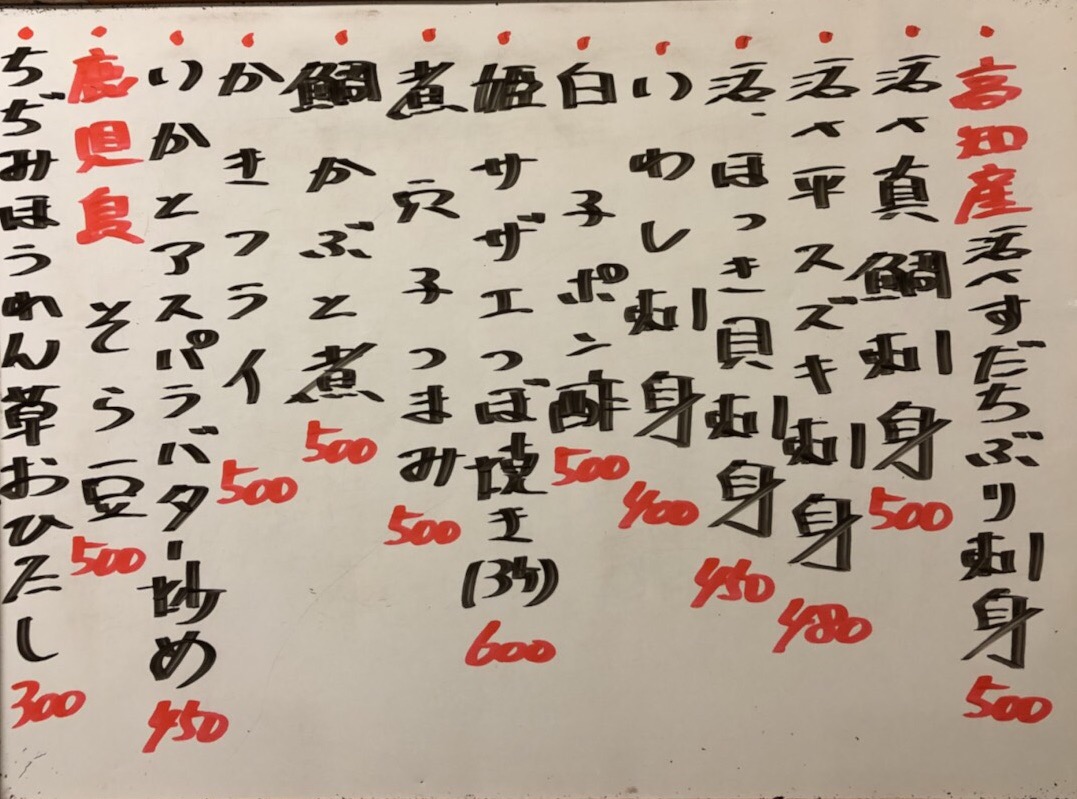 高知産活〆すだちぶり刺身 500
活〆真鯛刺身 500
活〆平スズキ刺身 480
活ほっき貝刺身 450
いわし刺身 400
白子ポン酢 500
姫サザエつぼ焼き(3ケ) 600
煮穴子つまみ 500
鯛かぶと煮 500
かきフライ 500
いかとアスパラバター炒め 450
鹿児島 そら豆 500
ちぢみほうれん草おひたし 300